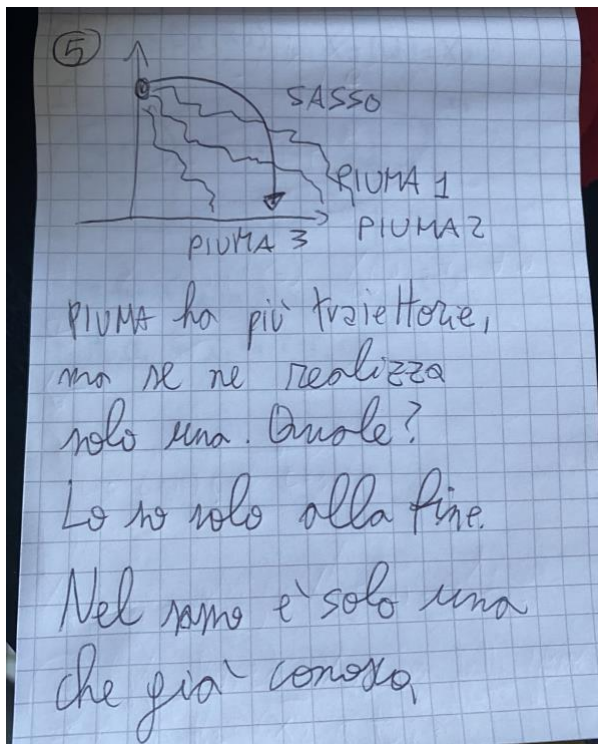 5
SASSO
PIUMA 1
PIUMA 2
PIUMA 3
PIUMA ha più traiettorie,
ma se ne realizza
solo una. Quale?
Lo so solo alla fine.
Nel sasso è solo una
che già conosco